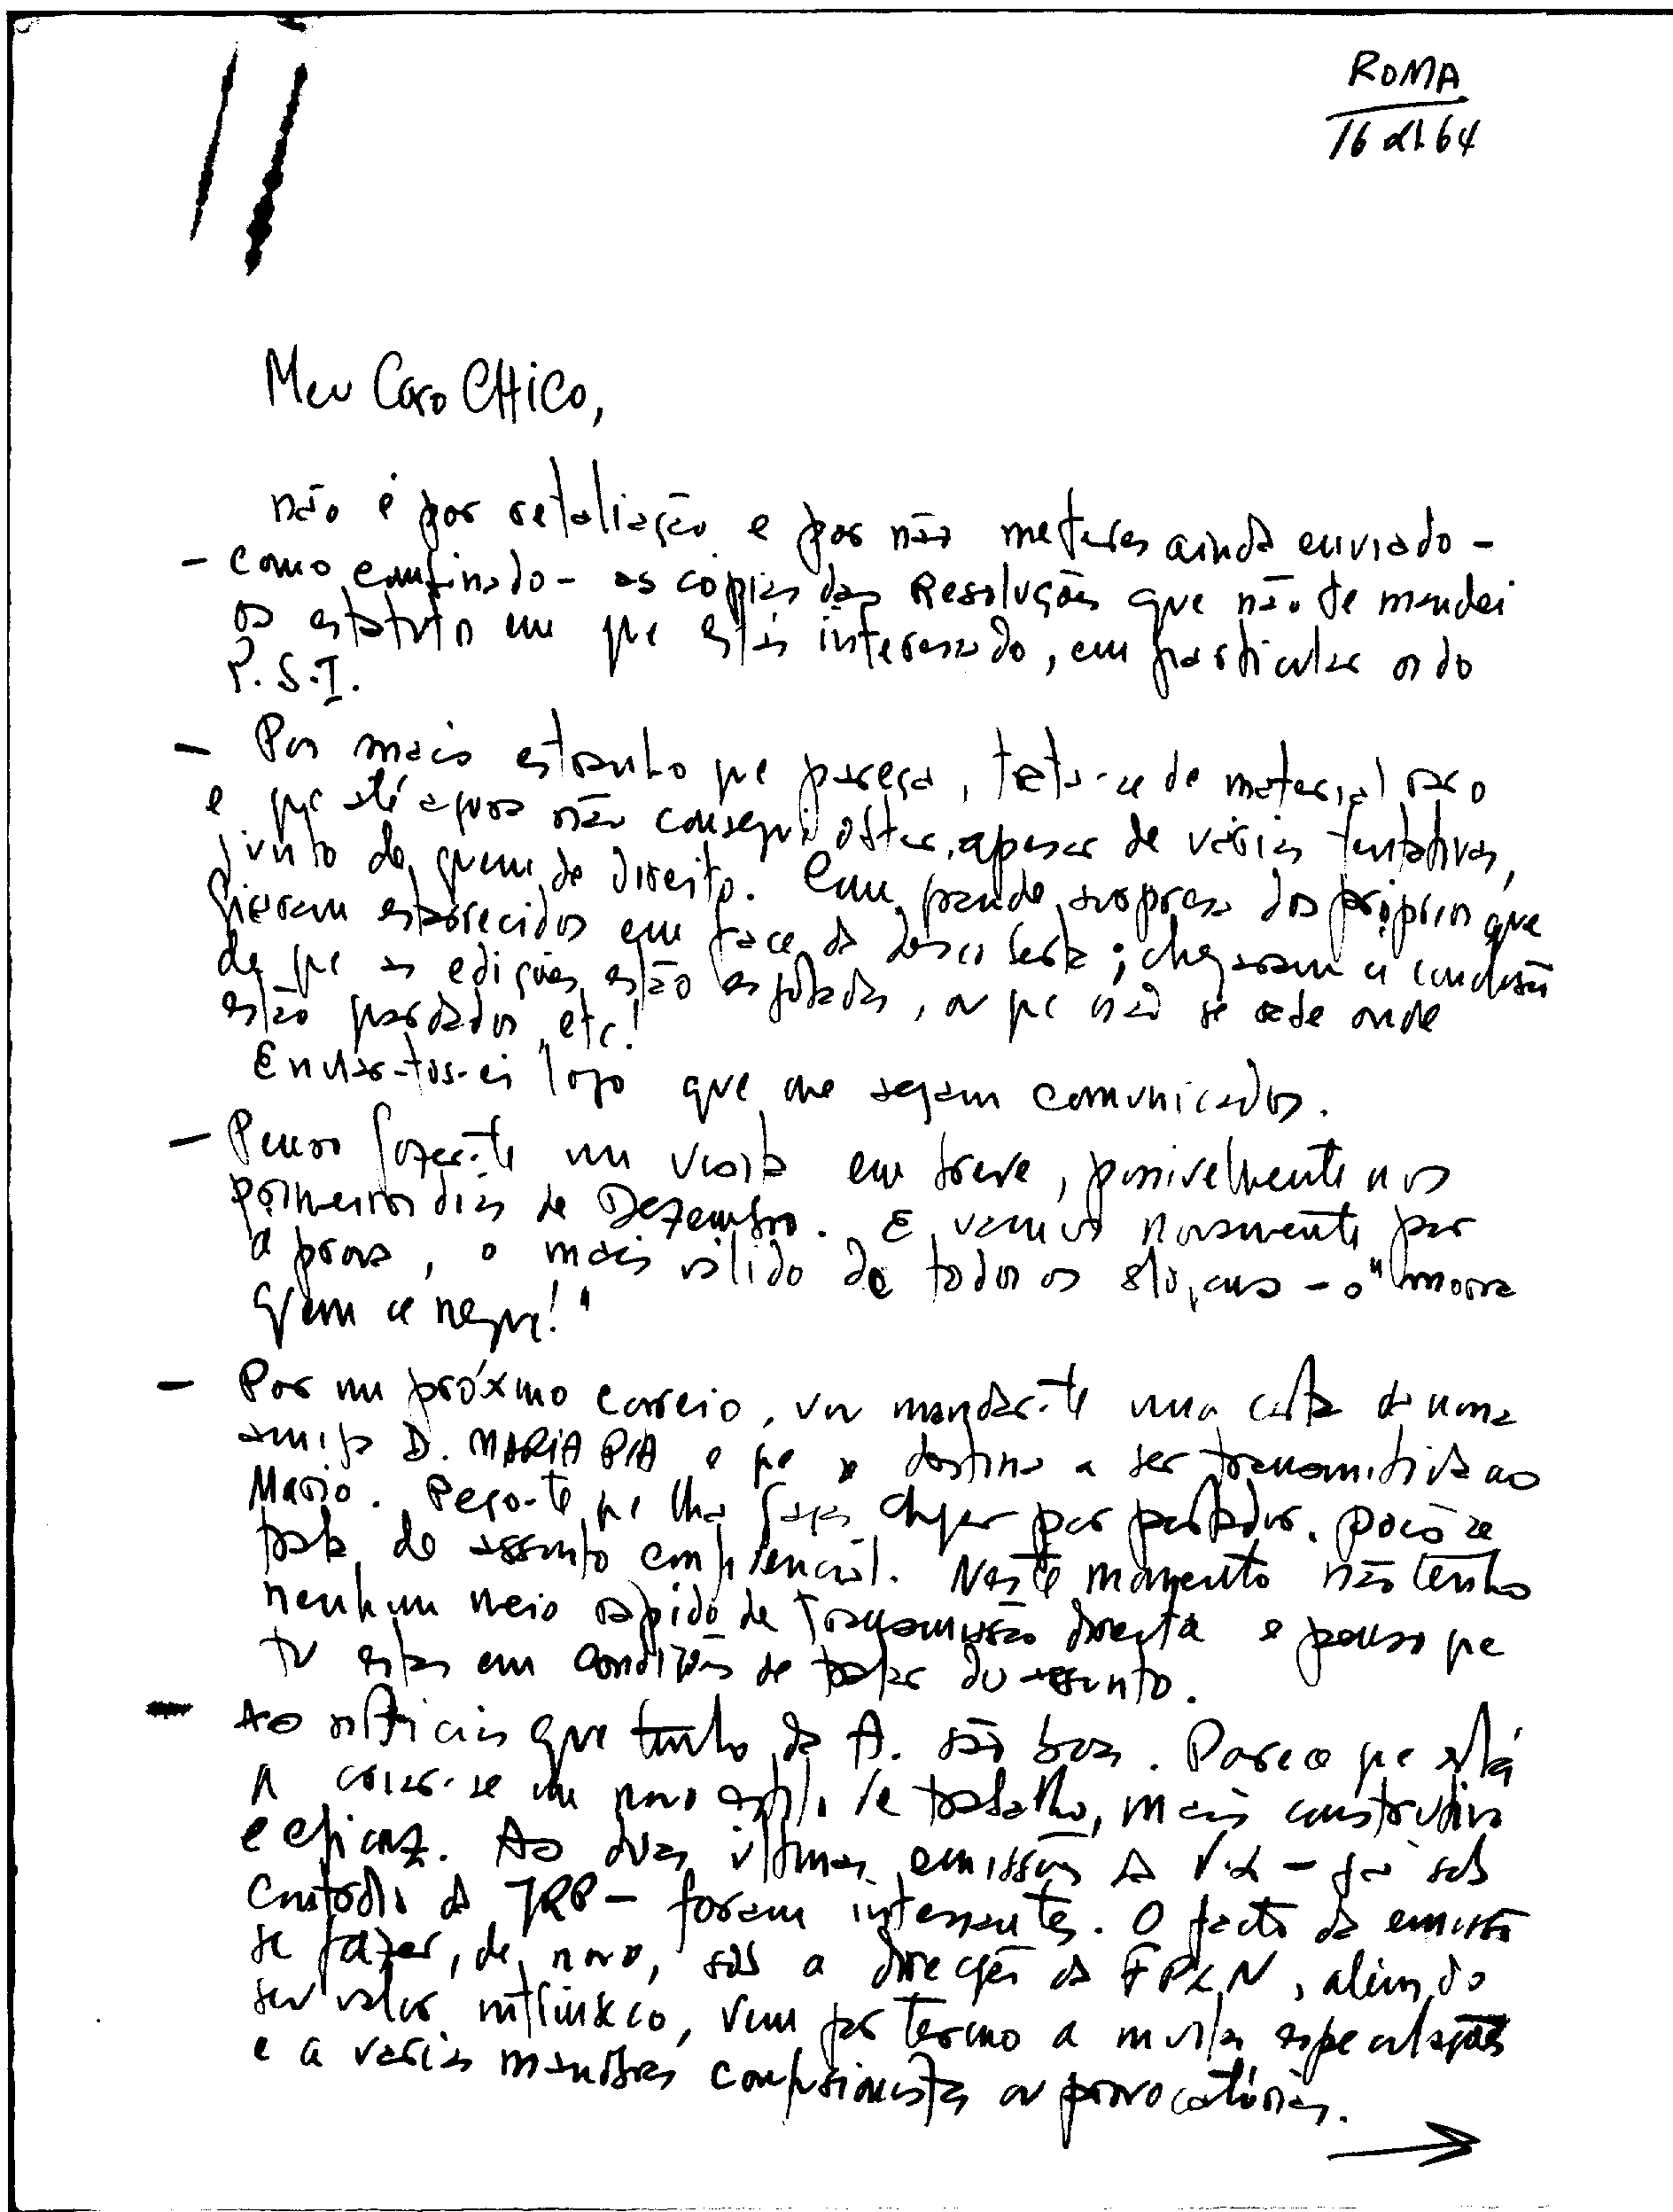 ROMA
16 64
Meu Caro CHICO,
não é por retaliação e por não me teres ainda enviado -
- como combinado - as cópias das Resoluções que não te mandei
os estatutos em que estás interessado, em particular os do
P.S.I.
- Por mais estranho que pareça, trata-se de material raro
e que até agora não consegui obter, apesar de várias tentativas,
junto de quem de direito. Com grande surpresa dos próprios que
ficaram estarrecidos em face da descoberta; chegaram à conclusão
de que as edições estão esgotadas, ou que não se sabe onde
estão guardados, etc.!
Enviar-tos-ei logo que me sejam comunicados.
- Penso fazer-te uma visita em breve, possivelmente nos
primeiros dias de Dezembro. E vamos novamente pôr
à prova, o mais válido de todos os slogans - o "morra
quem se negue!"
- Por um próximo correio, vou mandar-te uma carta da nossa
amiga D. MARIA PIA e que se destina a ser transmitida ao
Mario. Peço-te que lha faças chegar por portador, pois se
trata de assunto confidencial. Neste momento não tenho
nenhum meio rápido de transmissão directa e penso que
tu estás em condições de tratar do assunto.
- As notícias que tenho da A. são boas. Parece que está
a criar-se um novo estilo de trabalho, mais construtivo
e eficaz. As duas últimas emissões da V.L - já sob
custódia da JRP - foram interessantes. O facto da emissão
se fazer, de novo, sob a direcção da FPLN, além do
seu valor intrínseco, vem pôr termo a muitas especulações
e a várias manobras confusionistas ou provocatórias.